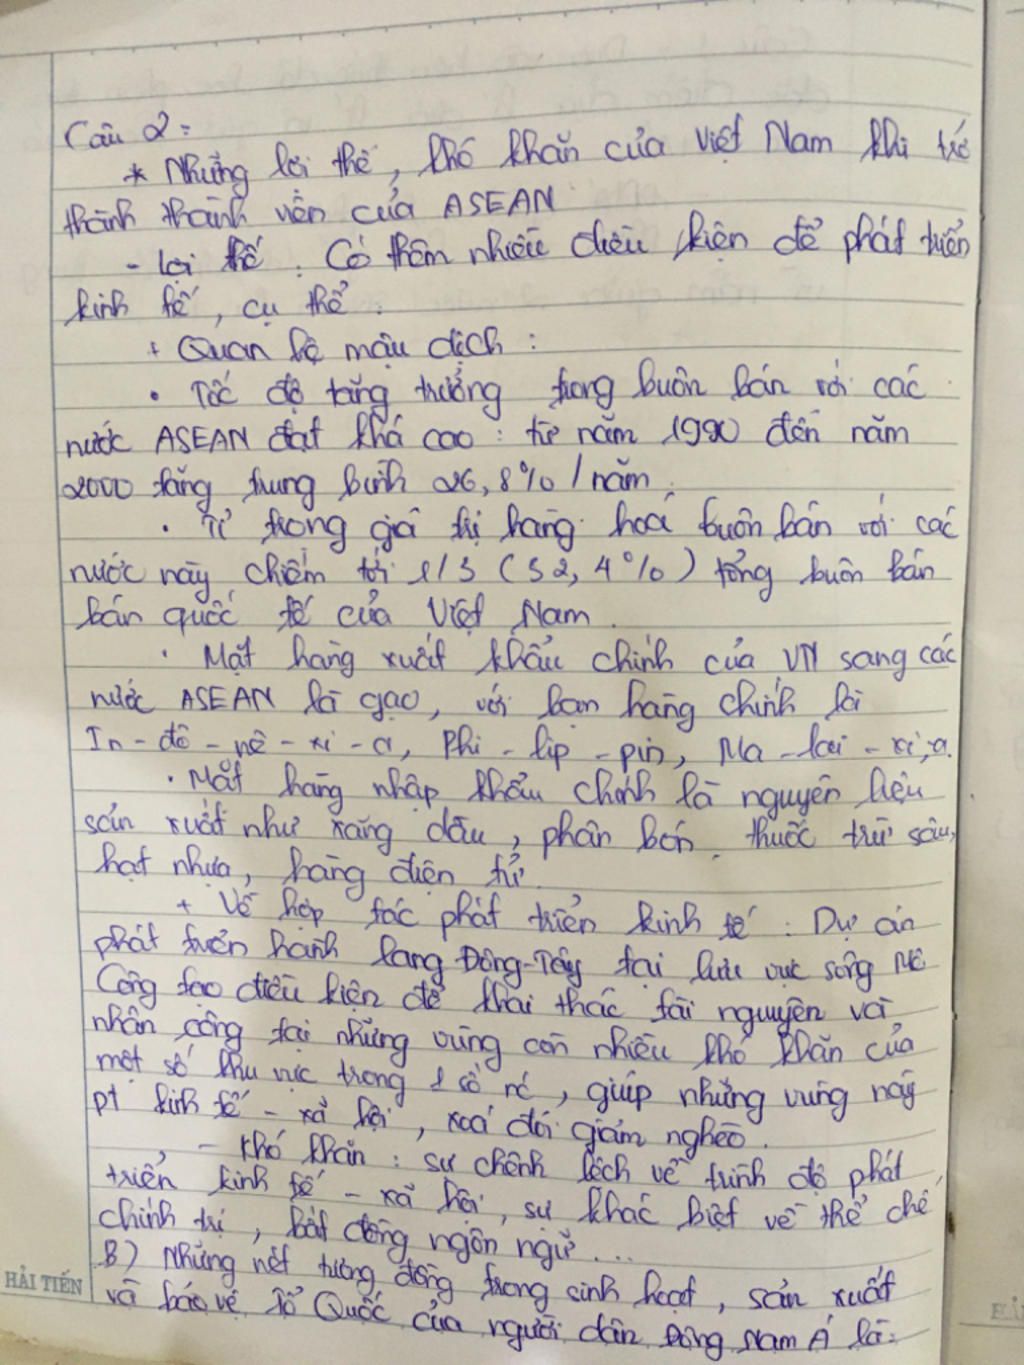 Câu 2:
* Những lợi thế, khó khăn của Việt Nam khi trở
thành thành viên của ASEAN
- Lợi thế : Có thêm nhiều điều kiện để phát triển
kinh tế, cụ thể :
+ Quan hệ mậu dịch :
• Tốc độ tăng trưởng trong buôn bán với các
nước ASEAN đạt khá cao : từ năm 1990 đến năm
2000 tăng trung bình 26,8% / năm.
• Tỉ trọng giá trị hàng hoá buôn bán với các
nước này chiếm tới 1/3 (32,4%) tổng buôn bán
bán quốc tế của Việt Nam.
• Mặt hàng xuất khẩu chính của VN sang các
nước ASEAN là gạo, với bạn hàng chính là
In-đô-nê-xi-a, Phi-lip-pin, Ma-lai-xi-a.
• Mặt hàng nhập khẩu chính là nguyên liệu
sản xuất như xăng dầu, phân bón, thuốc trừ sâu,
hạt nhựa, hàng điện tử.
+ Về hợp tác phát triển kinh tế : Dự án
phát triển hành lang Đông-Tây tại lưu vực sông Mê
Công tạo điều kiện để khai thác tài nguyên và
nhân công tại những vùng còn nhiều khó khăn của
một số khu vực trong 1 số nc, giúp những vùng này
pt kinh tế - xã hội, xoá đói giảm nghèo.
- Khó khăn : sự chênh lệch về trình độ phát
triển kinh tế - xã hội, sự khác biệt về thể chế
chính trị, bất đồng ngôn ngữ ...
B) Những nét tương đồng trong sinh hoạt, sản xuất
và bảo vệ Tổ Quốc của người dân Đông Nam Á là:
HẢI TIẾN